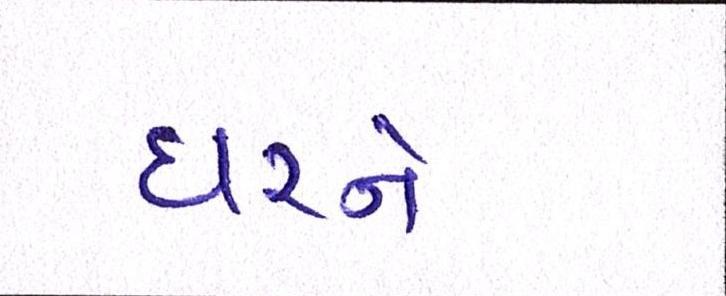 ઘરને